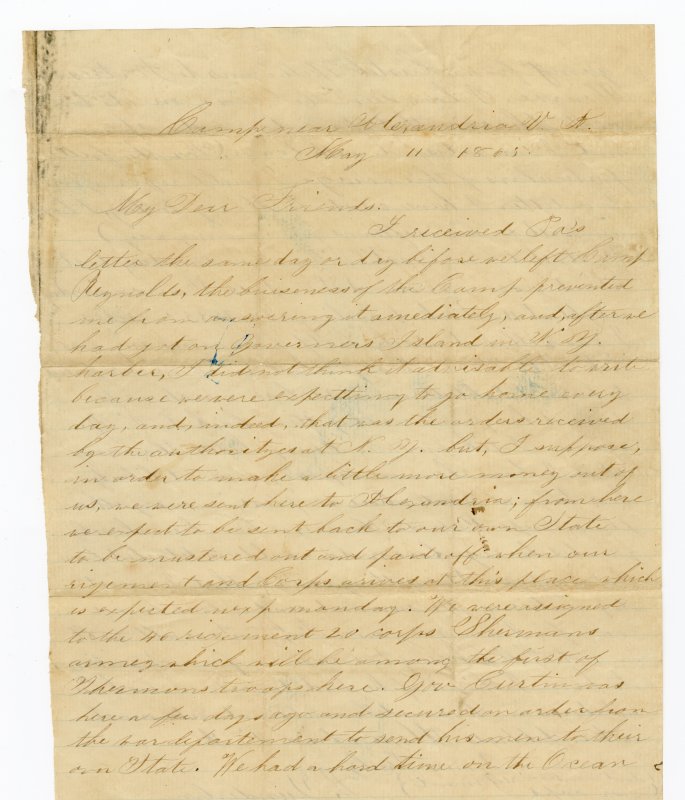 Camp near Alexandria V. A.
May 11 1865.
My Dear Friends.
I received Pa's
letter the same day or day before we left Camp
Reynolds, the buiseness of the Camp prevented
me from answering it amediately, and, after we
had got on Governers Island in N. Y.
harber, I did not think it advisable to write
because we were expecthing to go home every
day, and, indeed, that was the orders received
by the authorityes at N. Y. but, I suppose,
in order to make a little more money out of
us, we were sent here to Alexandria; from here
we expect to be sent back to our own State
to be mustered out and paid off when our
rigement and Corps arives at this place which
is expected nexp monday. We were assigned
to the 46 rigement 20 corps Shermans
armey which will be among the first of
Shermons troops here. Gov Curtin was
here a few days ago and secured an order from
the war departement to send his men to their
own State. We had a hard time on the Ocean